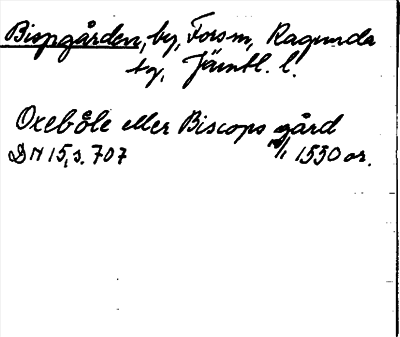 Bispgården, by, Forsm, Ragunda
tg, Jämtl. l.
Oxeböle eller Biscops gård
DN 15, s. 707 1530 or.